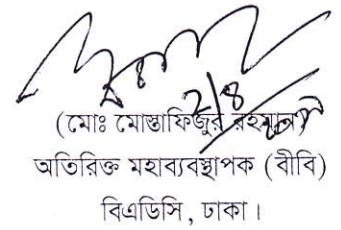 (মোঃ মোস্তাফিজুর রহমান)
অতিরিক্ত মহাব্যবস্থাপক (বীবি)
বিএডিসি, ঢাকা।